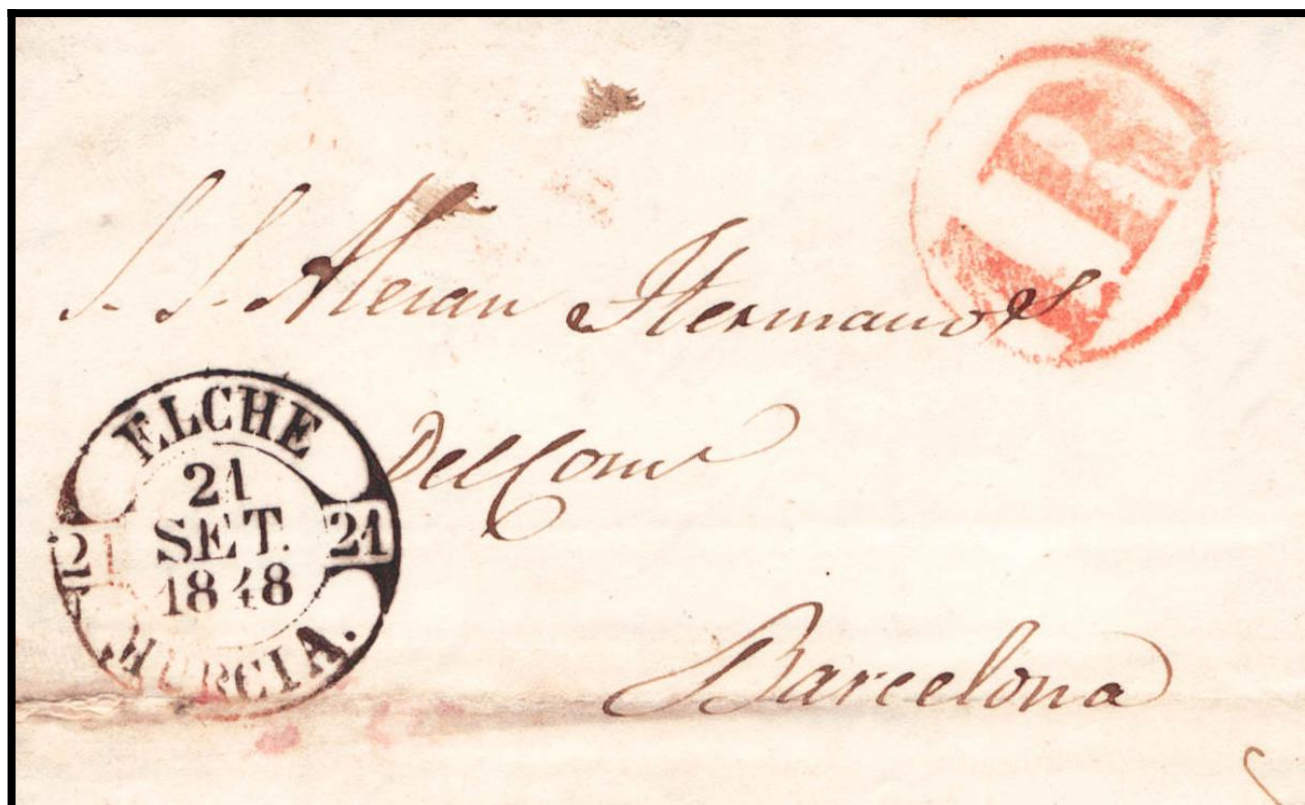 S. S. Hermanos
Del Comº
Barcelona
ELCHE
21
SET.
1848
21 21
MURCIA.